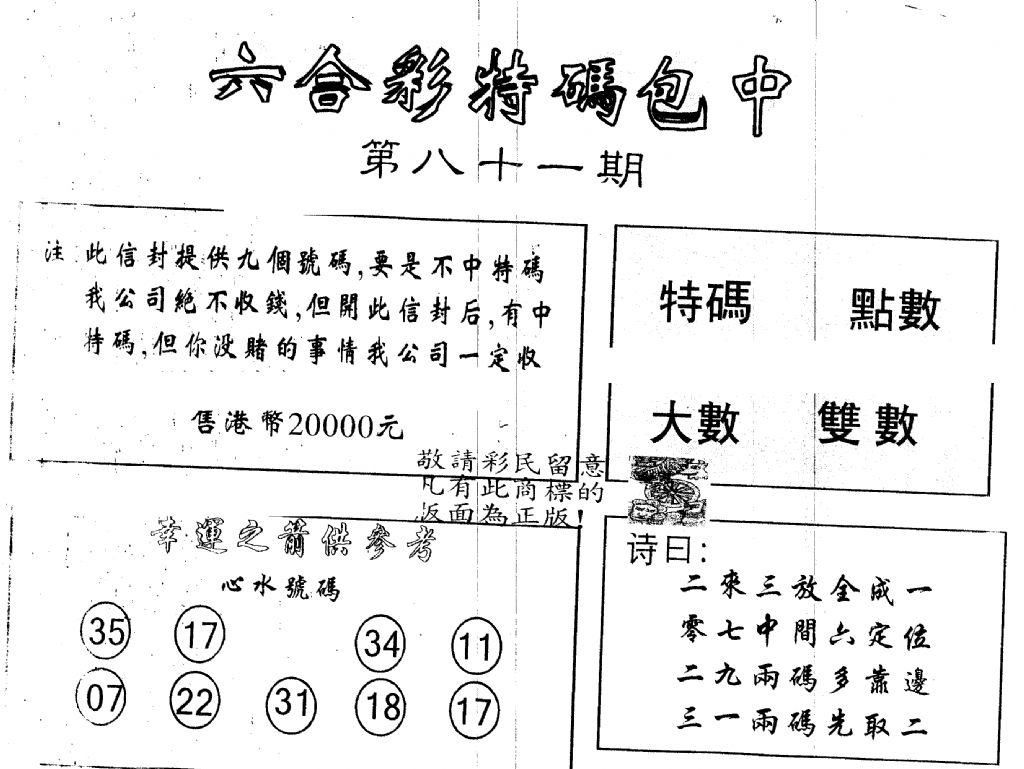 六合彩特碼包中
第八十一期
注 此信封提供九個號碼,要是不中特碼
我公司絕不收錢,但開此信封后,有中
特碼,但你没賭的事情我公司一定收
售港幣20000元
特碼 點數
大數 雙數
敬請彩民留意
凡有此商標的
版面為正版!
幸運之箭供參考
心水號碼
35 17 34 11
07 22 31 18 17
诗曰:
二來三放全成一
零七中間六定位
二九兩碼多靠邊
三一兩碼先取二